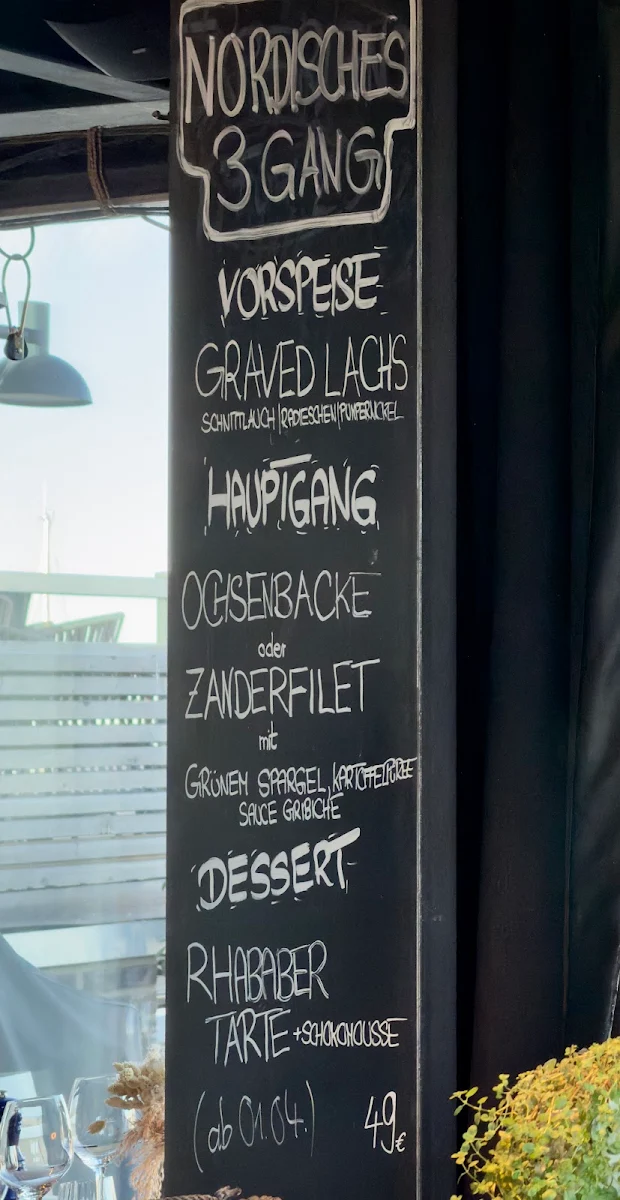 NORDISCHES
3 GANG
VORSPEISE
GRAVED LACHS
SCHNITTLAUCH | RADIESCHEN | PUMPERNICKEL
HAUPTGANG
OCHSENBACKE
oder
ZANDERFILET
mit
GRÜNEM SPARGEL, KARTOFFELPÜREE
SAUCE GRIBICHE
DESSERT
RHABABER
TARTE + SCHOKOMOUSSE
(ab 01.04.) 49€